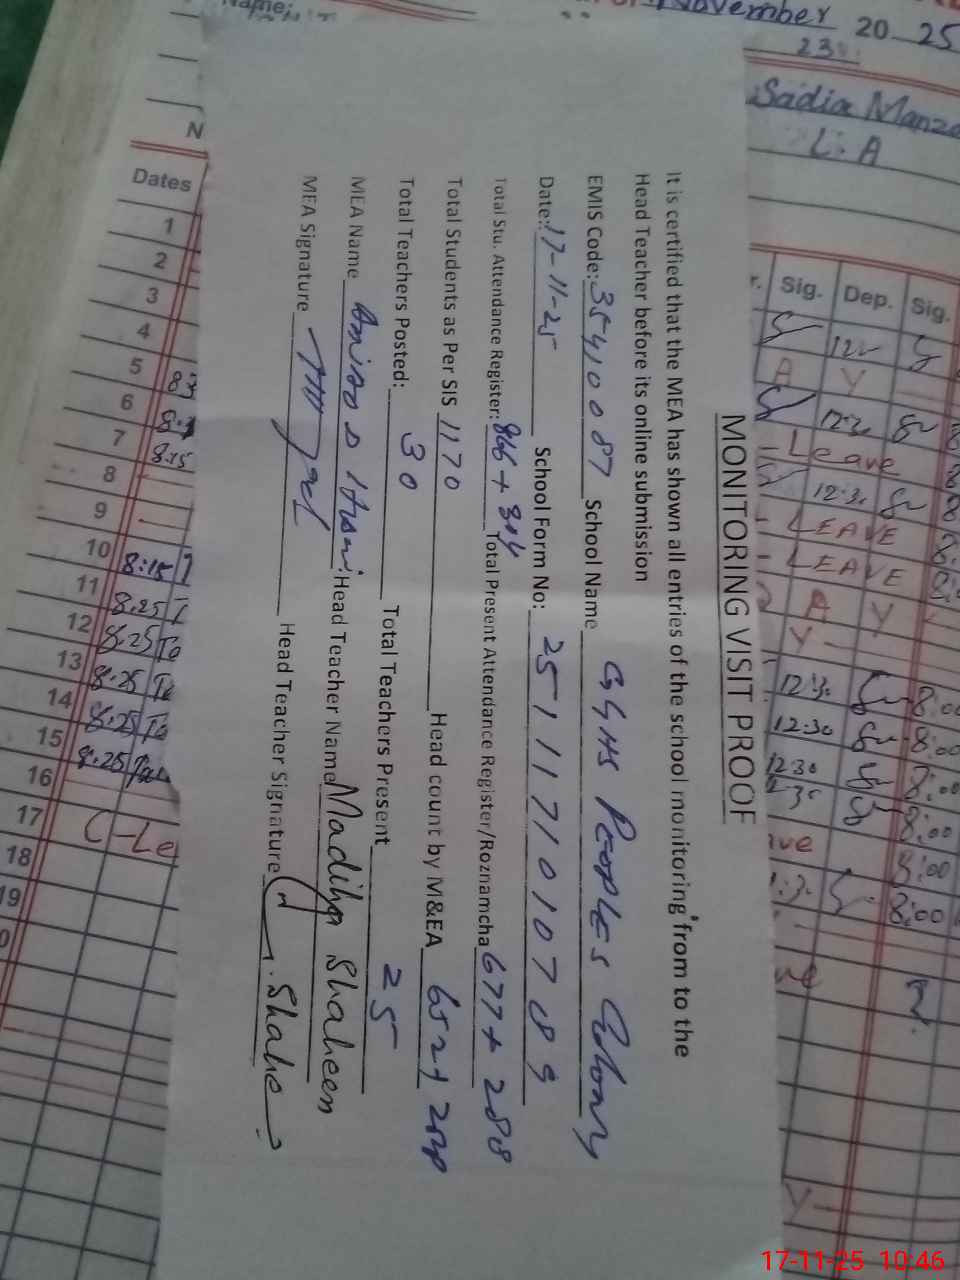 MONITORING VISIT PROOF
It is certified that the MEA has shown all entries of the school monitoring from to the
Head Teacher before its online submission
EMIS Code: 35410087 School Name GGHS Peoples Colony
Date: 17-11-25 School Form No: 2511171010789
Total Stu. Attendance Register: 866+304 Total Present Attendance Register/Roznamcha 677+288
Total Students as Per SIS 1170 Head count by M&EA 652+
Total Teachers Posted: 30 Total Teachers Present 25
MEA Name Head Teacher Name Madiha Shaheen
MEA Signature Head Teacher Signature
Name:
November 20 25
23
Sadia
L.A
Dates
Sig. Dep. Sig.
1
2
3
4
5
6
7 8.15
8
9
10 8:15
11 8.25
12 8.25
13 8.25
14 8.25
15 8.25
16
17 C-Le
18
19
A Y
Leave
12:3.
LEAVE
LEAVE
A Y
Y
12:3. 8:00
12:30 8:00
12:30 8:00
8:00
8:00
8:00
17-11-25 10:46